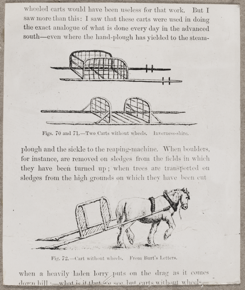 wheeled carts would have been useless for that work. But I
saw more than this: I saw that these carts were used in doing
the exact analogue of what is done every day in the advanced
south—even where the hand-plough has yielded to the steam-
Figs. 70 and 71.—Two Carts without wheels. Inverness-shire.
plough and the sickle to the reaping-machine. When boulders,
for instance, are removed on sledges from the fields in which
they have been turned up; when trees are transported on
sledges from the high grounds on which they have been cut.
Fig. 72.—Cart without wheels. From Burt's Letters.
when a heavily laden lorry puts on the drag as it comes
down hill—what is it that